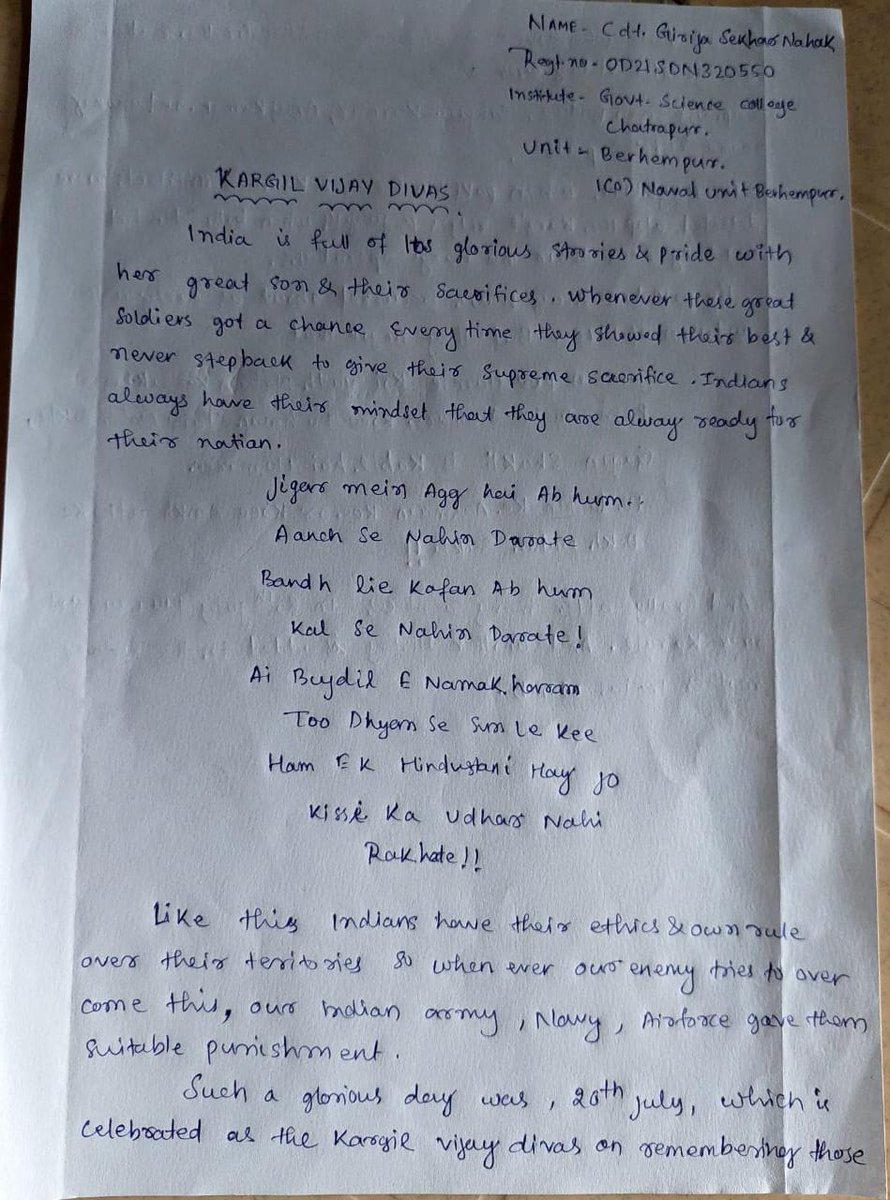 NAME - Cdt. Girija Sekhar Nahak
Regt. no - OD21SDN320550
Institute - Govt. Science college
Chatrapur.
Unit - Berhempur.
1(O) Naval Unit Berhempur.
KARGIL VIJAY DIVAS.
India is full of Its glorious stories & pride with
her great son & their sacrifices. Whenever these great
Soldiers got a chance Every time they showed their best &
never stepback to give their supreme sacrifice. Indians
always have their mindset that they are alway ready for
their natian.
Jigar mein Agg hai Ab hum..
Aanch Se Nahin Darate
Bandh lie Kafan Ab hum
Kal Se Nahin Darate!
Ai Buydil E Namak haram
Too Dhyan Se Sun Le Kee
Ham EK Hindustani Hay Jo
Kisse Ka Udhar Nahi
Rakhate!!
Like this Indians have their ethics & own rule
over their teritories so when ever our enemy tries to over
come this, our Indian army, Navy, Airforce gave them
Suitable punishment.
Such a glorious day was, 26th July, which is
celebrated as the Kargil vijay divas on remembering those